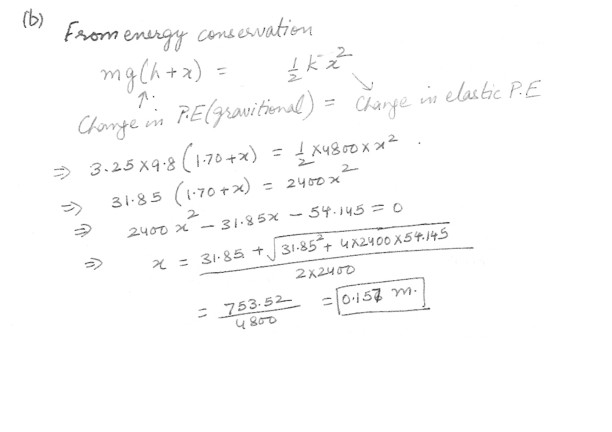 (b) From energy conservation
mg(h+x) = 1/2 k x²
Change in P.E(gravitional) = Change in elastic P.E
⇒ 3.25×9.8 (1.70+x) = 1/2 ×4800×x² .
⇒ 31.85 (1.70+x) = 2400x²
⇒ 2400 x² − 31.85x − 54.145 = 0
⇒ x = (31.85 + √(31.85² + 4×2400×54.145)) / (2×2400)
= 753.52/4800 = 0.157 m.